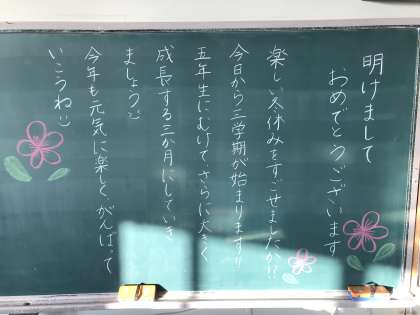 明けまして
おめでとうございます
楽しい冬休みをすごせましたか!?
今日から三学期が始まります!!
五年生にむけて、さらに大きく
成長する三か月にしていき
ましょう
今年も元気に楽しくがんばって
いこうね